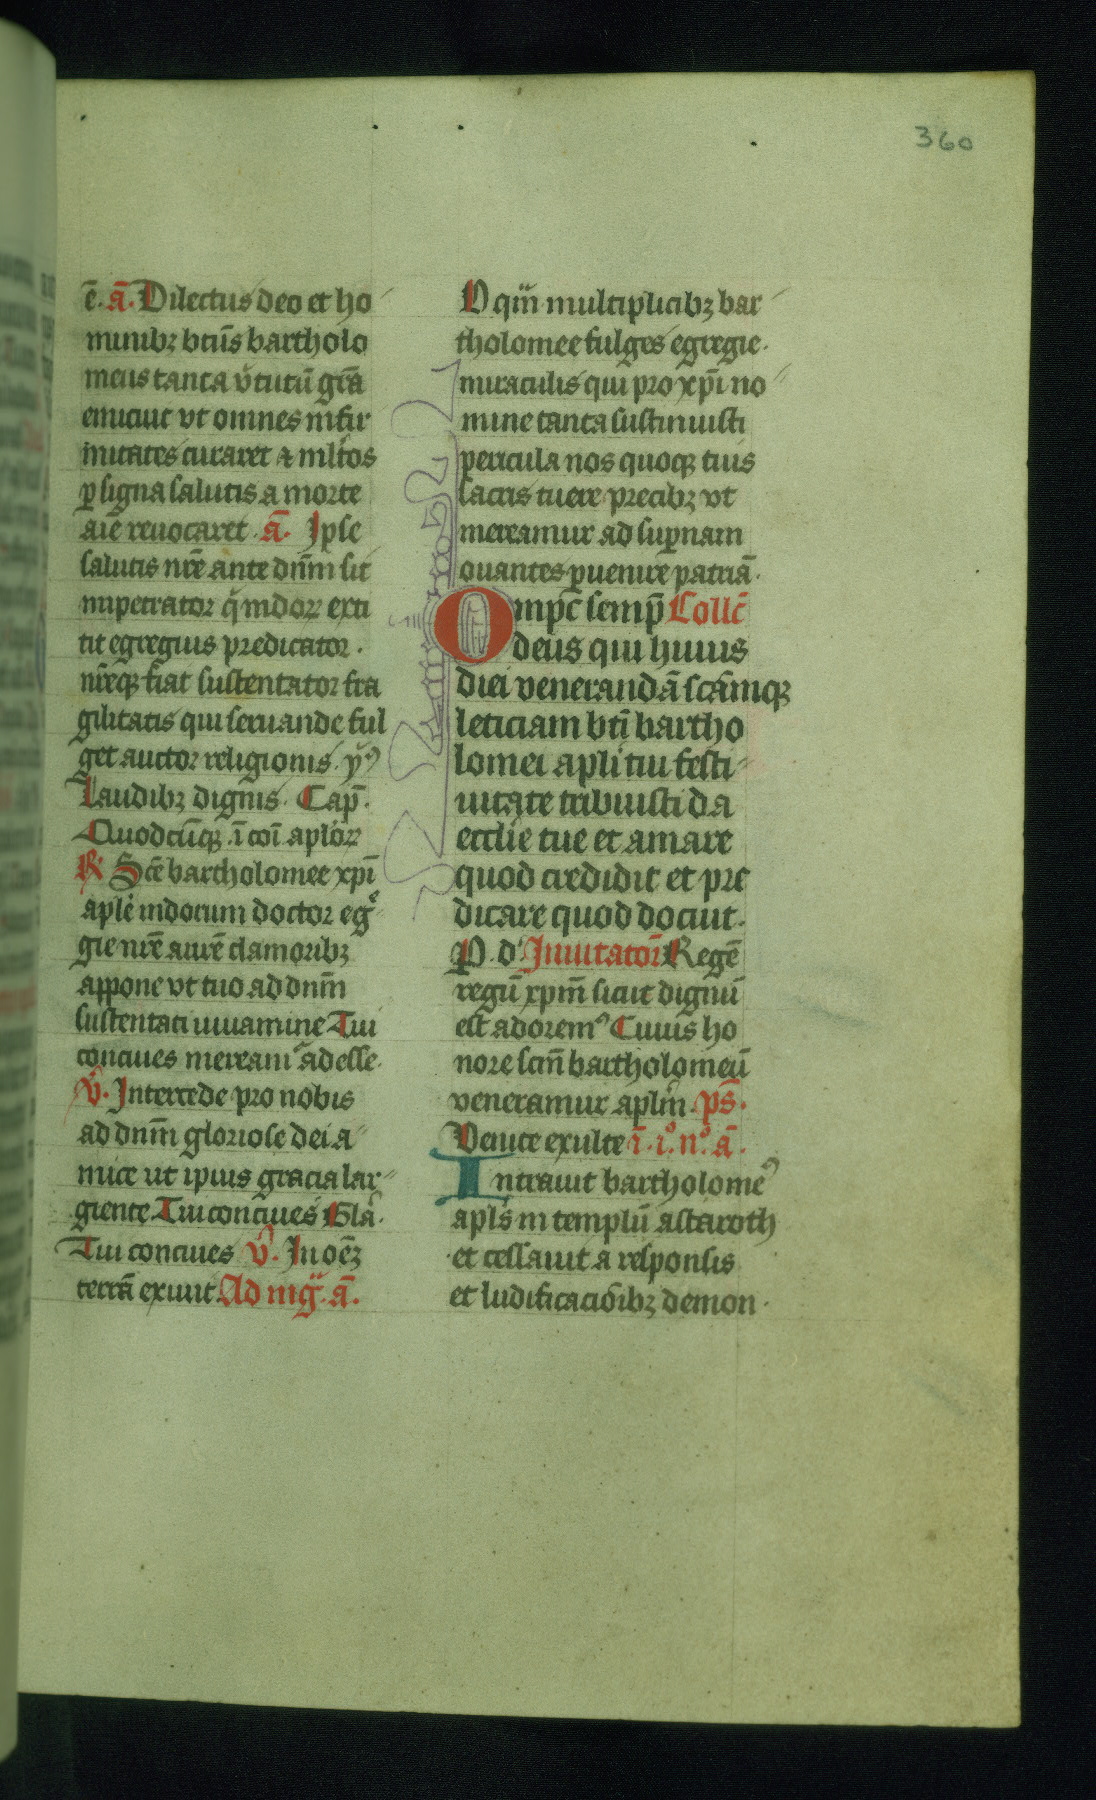 360
ē. a̅. Dilectus deo et ho
minibꝫ btūs bartholo
meus tanta v̾tutū grā
emicuit vt omnes infir
mitates curaret ⁊ mltos
ꝑ signa salutis a morte
aīe reuocaret. a̅. Ipse
salutis nrē ante dnm̄ sit
impetrator q̇ indoꝝ exti
tit egregius predicator.
nrēqꝫ fiat sustentator fra
gilitatis qui seruande ful
get auctor religionis. yꝰ
Laudibꝫ dignis. Cap̄.
Quodcūqꝫ. ī coī aploꝝ
R̷. Scē bartholomee xpī
aplē indorum doctor eg̊
gie nrē aurē clamoribꝫ
appone vt tuo ad dnm̄
sustentati iuuamine Tui
conciues mereamᷣ adesse.
v̾. Intercede pro nobis
ad dnm̄ gloriose dei a
mice ut ipius gracia lar
giente. Tui conciues Glā.
Tui conciues v̾. In oēꝫ
terrā exiuit. Ad mg̅. a̅.
O qm̄ multiplicibꝫ bar
tholomee fulges egregie.
miraculis qui pro xpī no
mine tanta sustinuisti
pericula nos quoqꝫ tuis
sacris tuere precibꝫ vt
mereamur ad suꝑnam
ouantes ꝑuenire patriā.
Omp̄c semp̄ Collc̄
deus qui huius
diei venerandā scāmqꝫ
leticiam btī bartho
lomei apli tui festi
uitate tribuisti da
ecclie tue et amare
quod credidit et pre
dicare quod docuit.
P. d' Inuitatoꝛ̄ Regē
regū xpm̄ sicut dignū
est adoremꝰ Cuius ho
nore scm̄ bartholomeū
veneramur aplm. ps̄.
Venite exulte ī. i.̊ n.̊ a̅.
Intrauit bartholomeꝰ
apls in templū astaroth
et cessauit a responsis
et ludificaciōibꝫ demon.